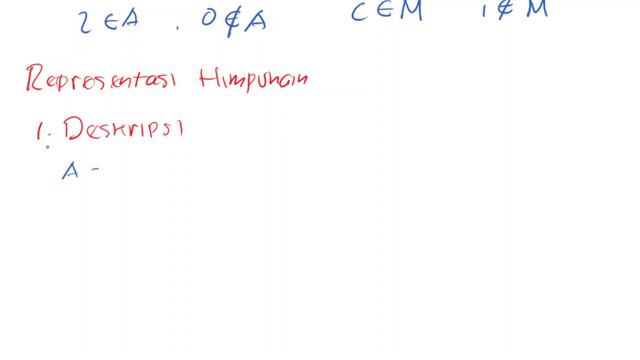 2 ∈ A . 0 ∉ A C ∈ M 1 ∉ M
Representasi Himpunan
1. Deskripsi
A -